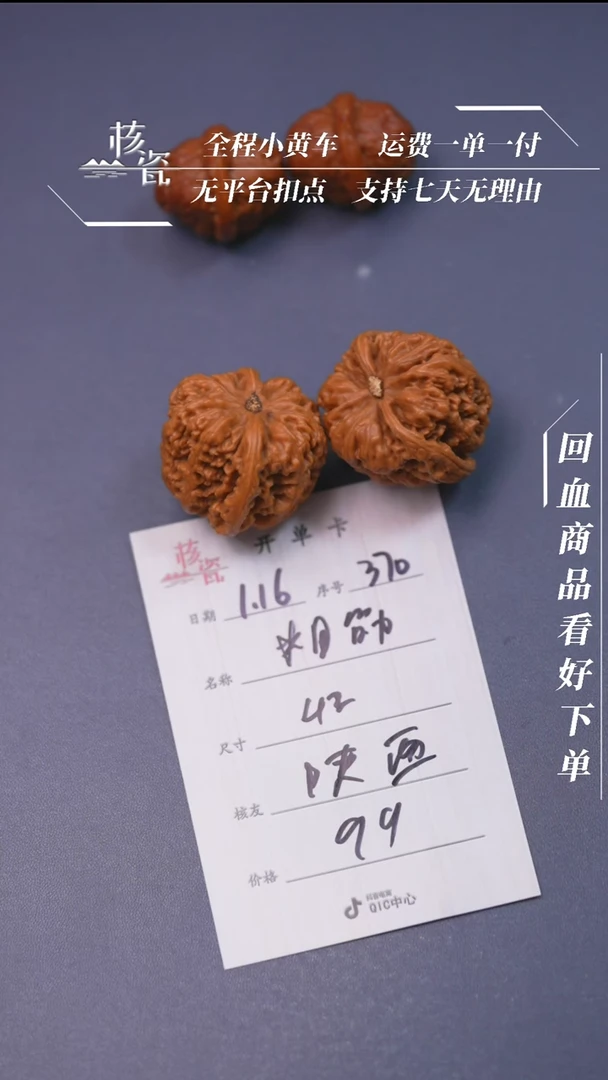 核瓷
全程小黄车 运费一单一付
无平台扣点 支持七天无理由
回血商品看好下单
核瓷
开单卡
日期 1.16 序号 370
名称 粗筋
尺寸 42
核友 陕西
价格 99
抖音电商
QIC中心